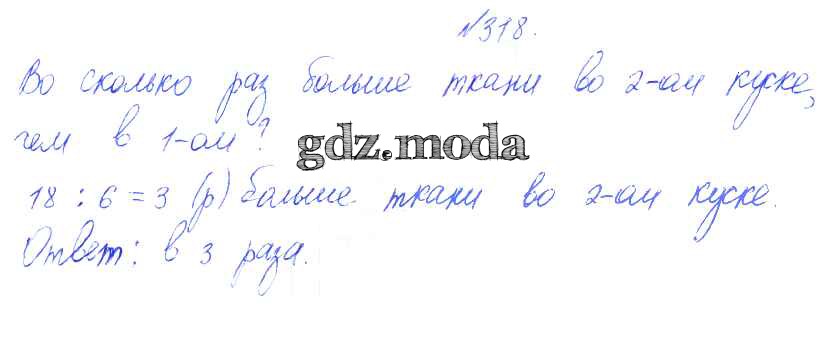 №318.
Во сколько раз больше ткани во 2-ом куске,
чем в 1-ом?
gdz.moda
18 : 6 = 3 (р) больше ткани во 2-ом куске.
Ответ: в 3 раза.